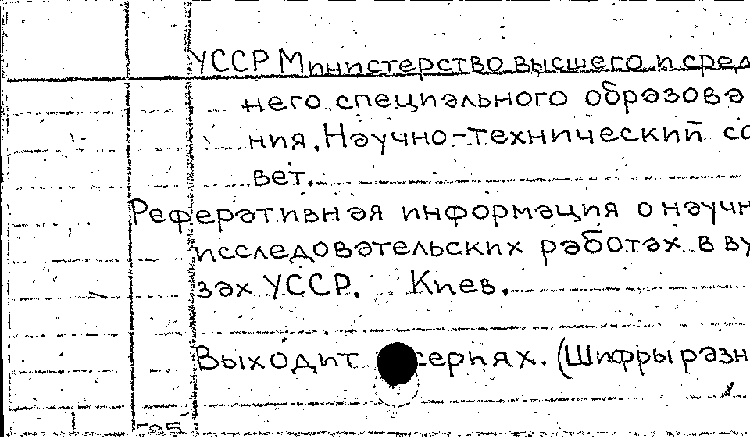 УССР Министерство высшего и сред
него специального образова
ния. Научно-технический со
вет.
Реферативная информация о научн
исследовательских работах в ву
зах УССР. Киев.
Выходит сериях. (Шифры разн